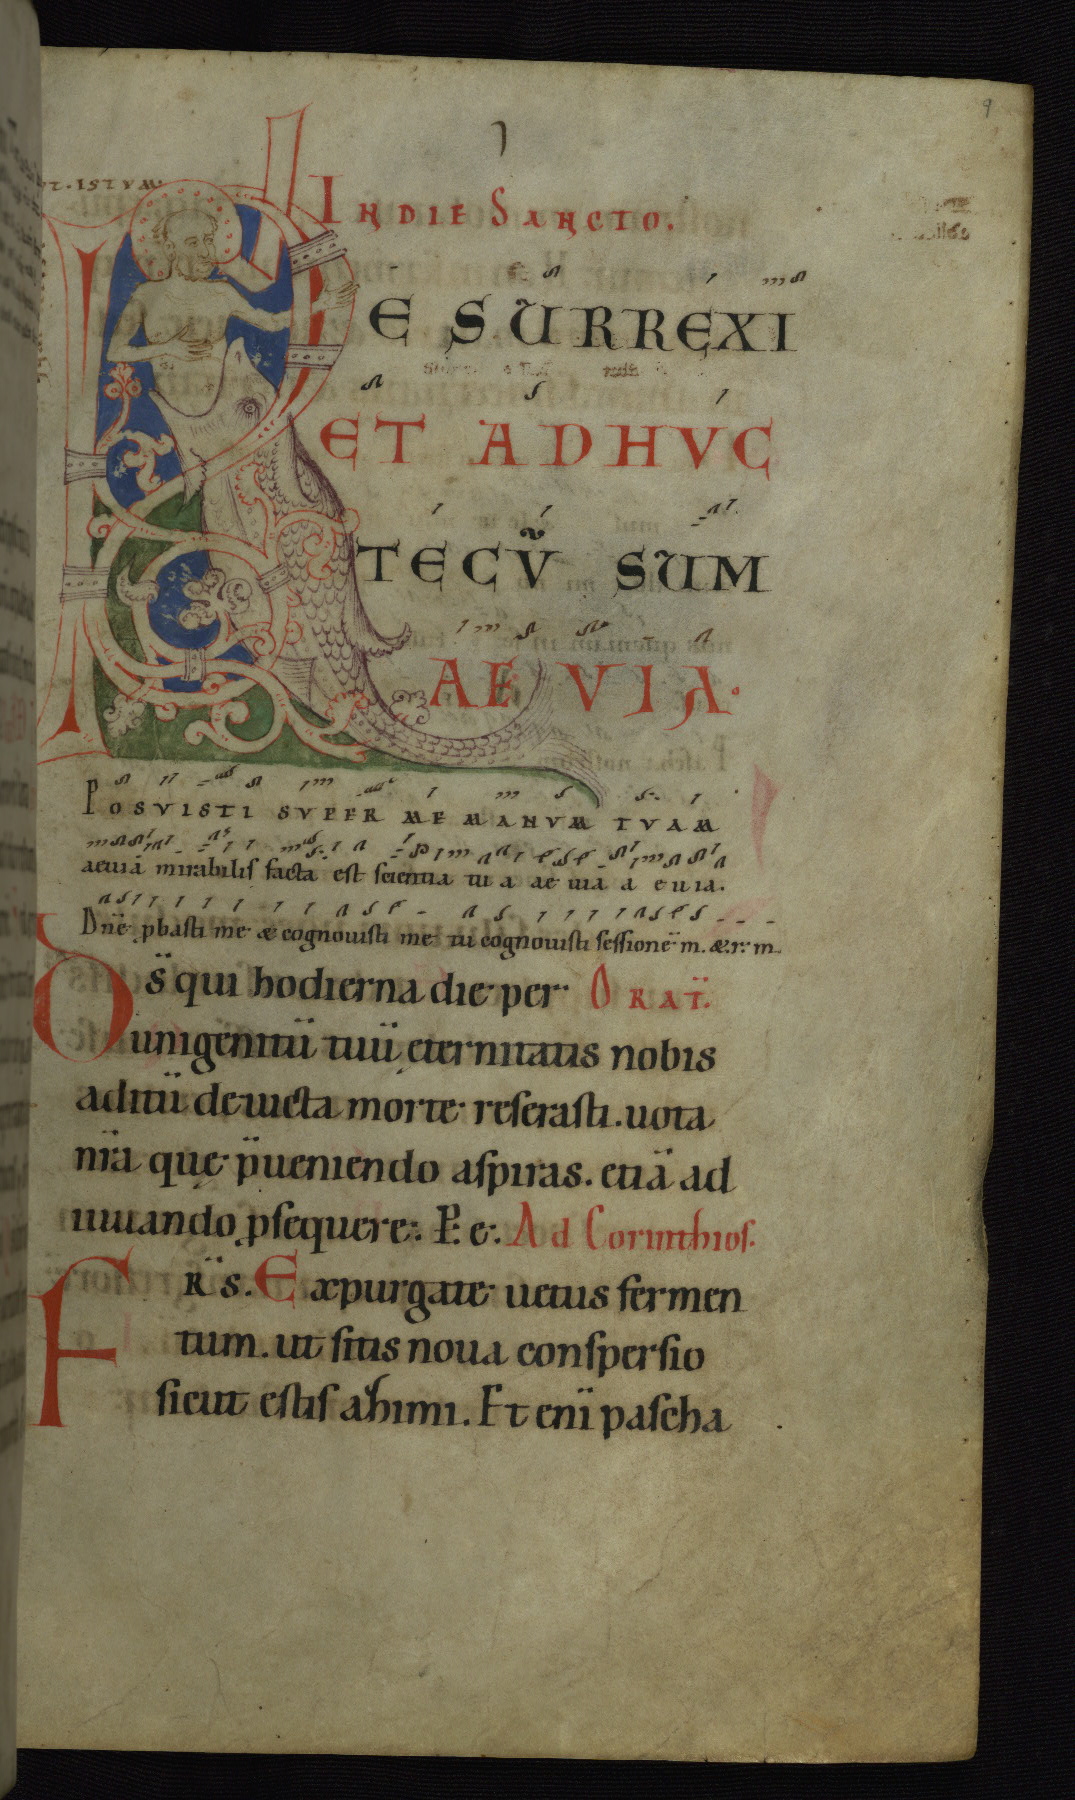 9
IN DIE SANCTO.
RESURREXI
ET ADHVC
TECV̄ SUM
AEVIA.
POSVISTI SVPER ME MANVM TVAM
aeuia mirabilis facta est scientia tu a ae uia a e u ia.
Dn̄e ꝓbasti me & cognouisti me tu cognouisti sessionē m. &. r. m.
Ds̄ qui hodierna die per ORAT̄.
unigenitū tuū eternitatis nobis
aditū deuicta morte reserasti. uota
nr̄a que p̄ueniendo aspiras. etiā ad
iuuando ꝓsequere. P. e. Ad Corinthios.
FRS̄. Expurgate uetus fermen
tum. ut sitis noua conspersio
sicut estis azimi. Et eni pascha